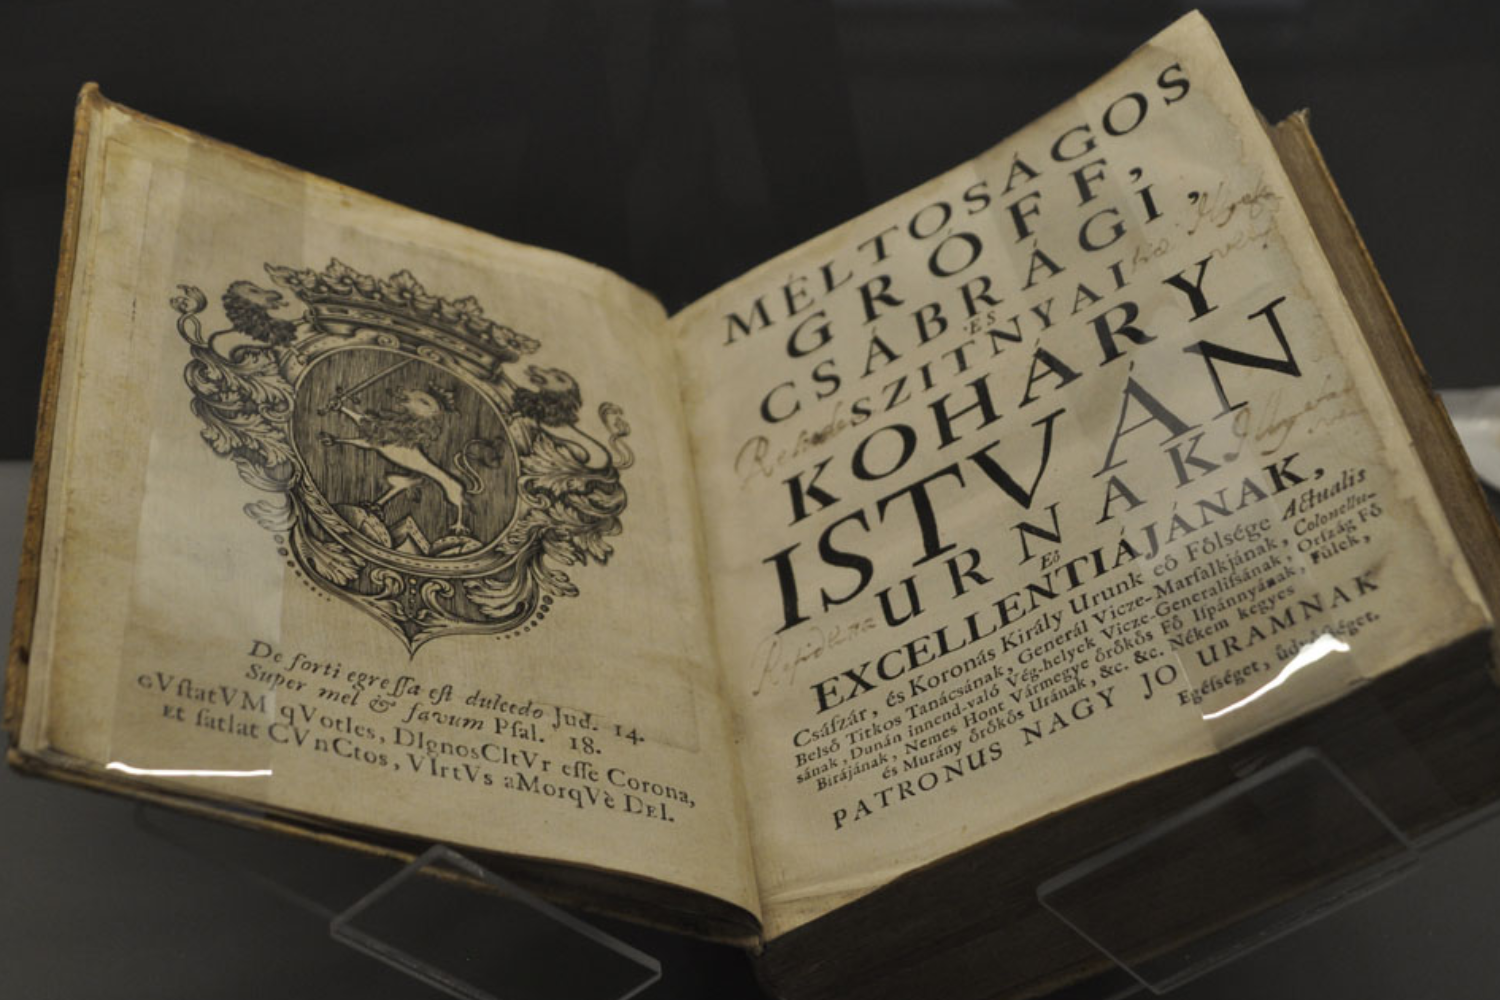 De forti egreſſa eſt dulcedo Jud. 14.
Super mel & favum Pſal. 18.
GVſtatVM qVotIes, DIgnosCItVr eſſe Corona,
Et ſatIat CVnCtos, VIrtVs aMorqVè DEI.
MÉLTOSÁGOS
GRÓFF,
CSÁBRÁGI,
ÉS
SZITNYAI
KOHÁRY
ISTVÁN
URNAK
Es
EXCELLENTIÁJÁNAK,
Csáſzár, és Koronás Király Urunk eő Fölsége Actualis
belső Titkos Tanácsának, Generál Vicze-Marſalkjának, Colonellu-
sának, Dunán innend-való Vég-helyek Vicze-Generaliſsának, Orſzág Fő
Birájának, Nemes Hont Vármegye örökös Fő Iſpánnyának, Fülek,
és Murány örökös Urának, &c. &c. Nékem kegyes
PATRONUS NAGY JO URAMNAK
Egéſséget,